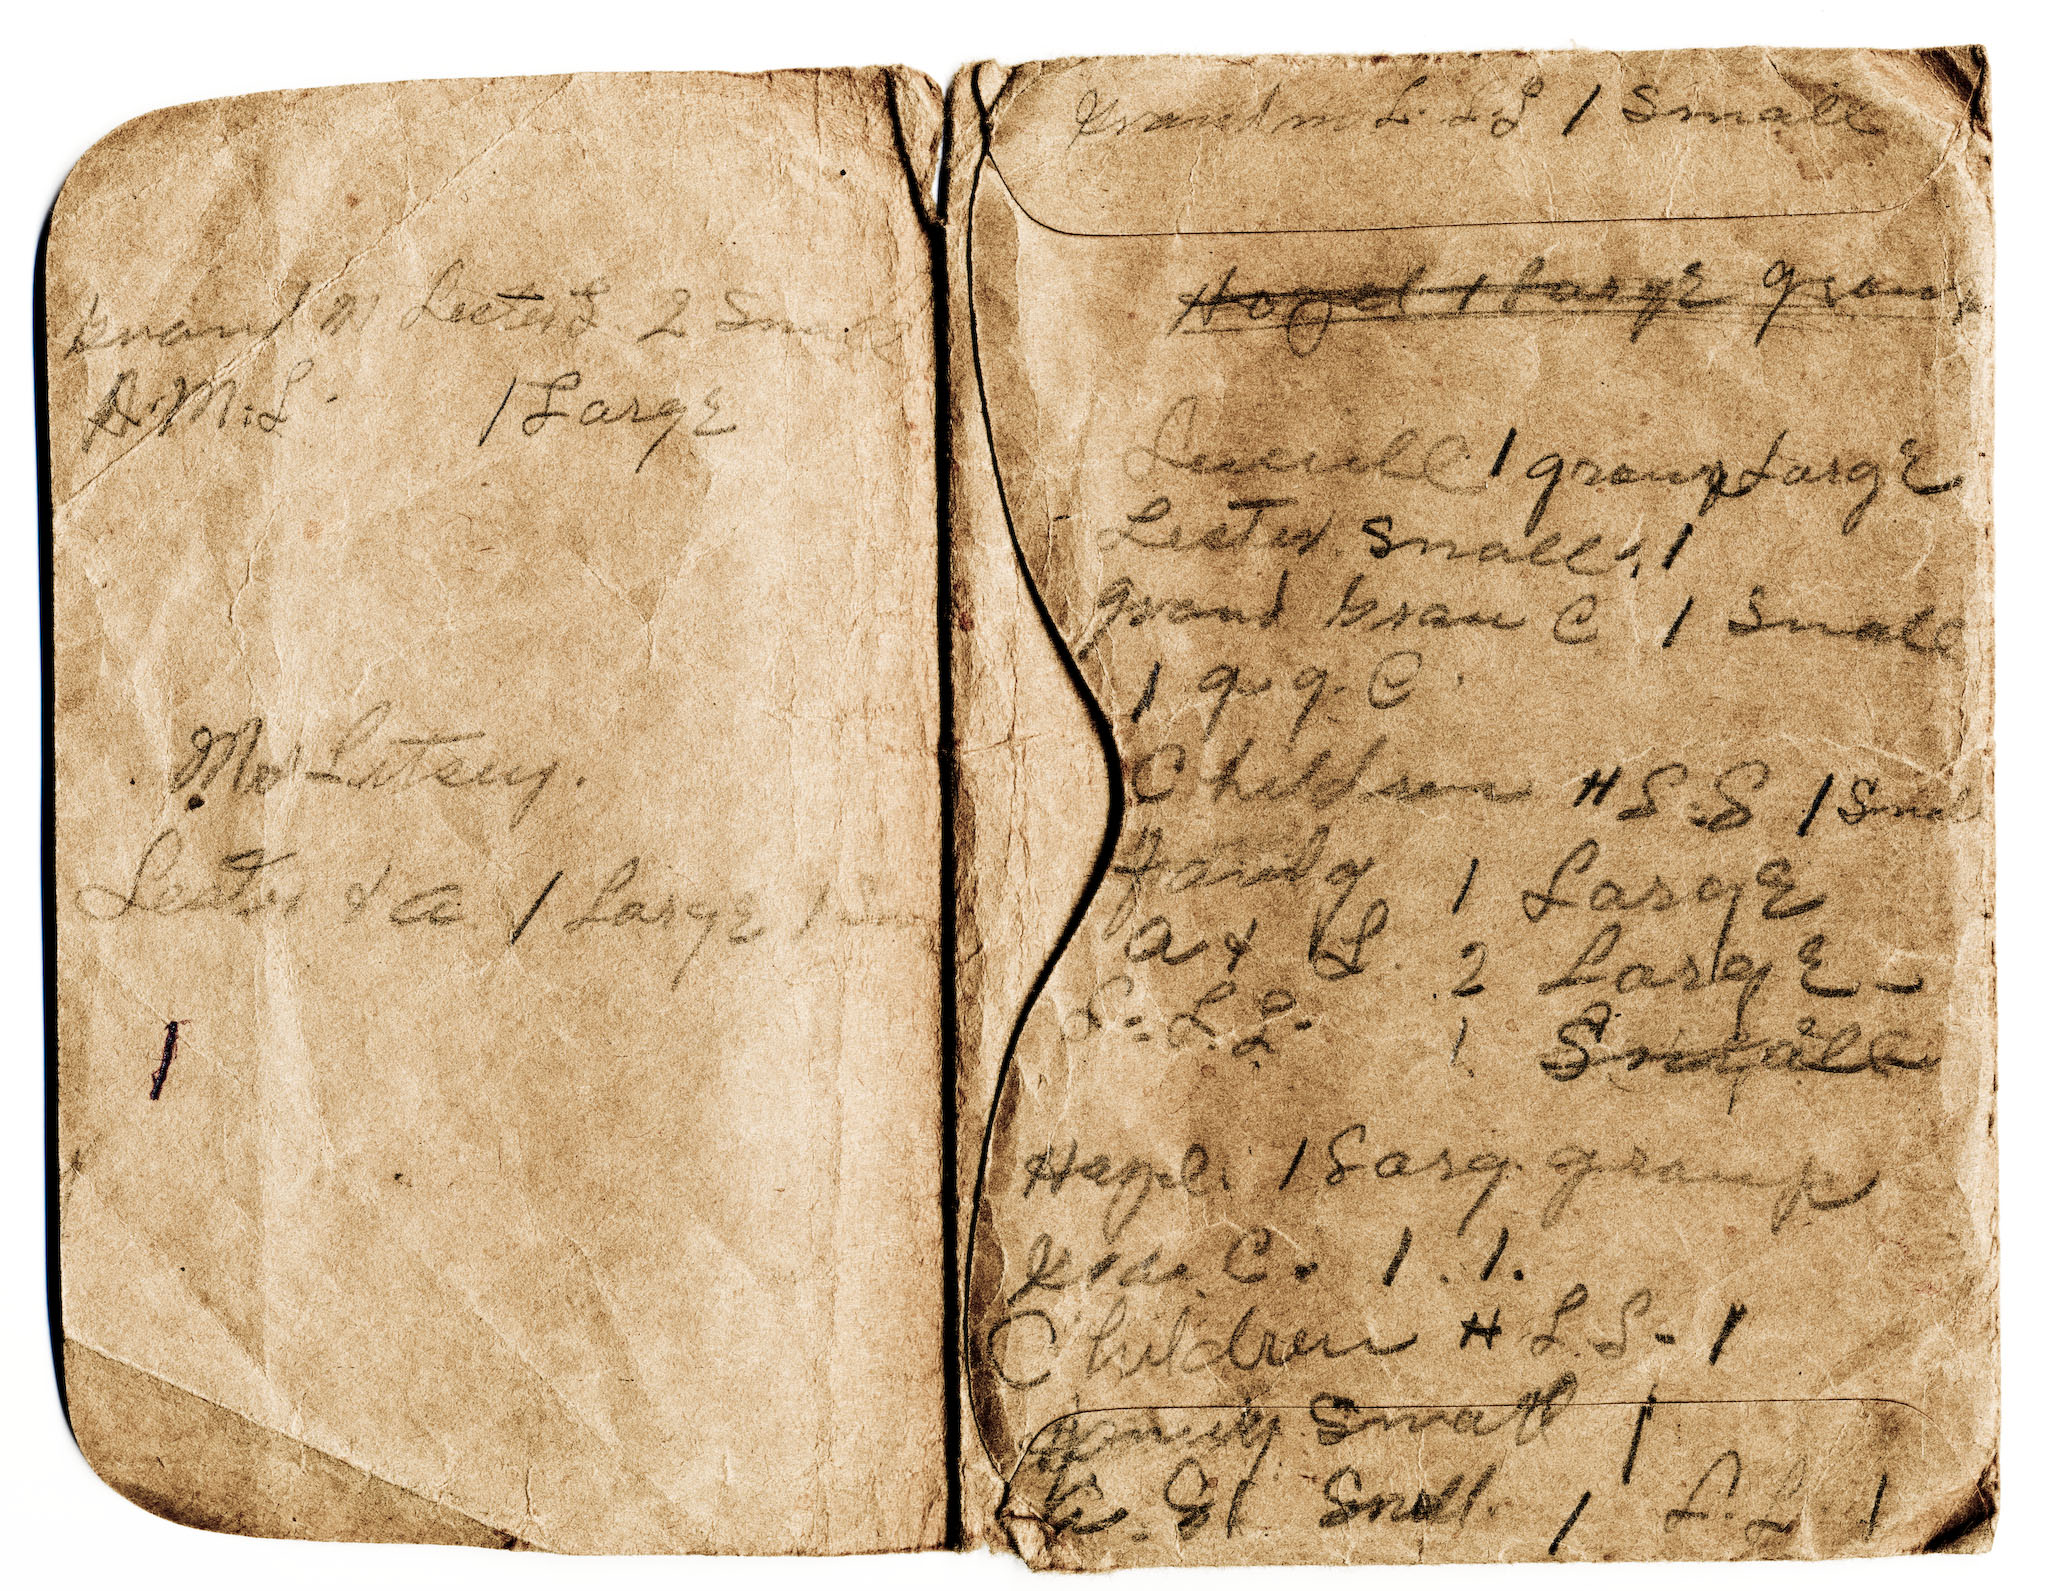 Grand m Lester L. 2 Small
A. M. L. 1 Large
Mr Litsey.
Lester & a 1 Large 1 Sm
Grandm L. L L 1 Small
Hazel 1 Large group
1 group Large
Lester Small. 1
grand Gran C 1 Small
1 g. g. C.
Children H L. S 1 Small
Family 1 Large
A & L. 2 Large -
S. L. L. 1 Small
Hazel. 1 Larg. group
Gra. C. 1. 1.
Children H L. S - 1
Family Small 1
Small. 1 L. L 1